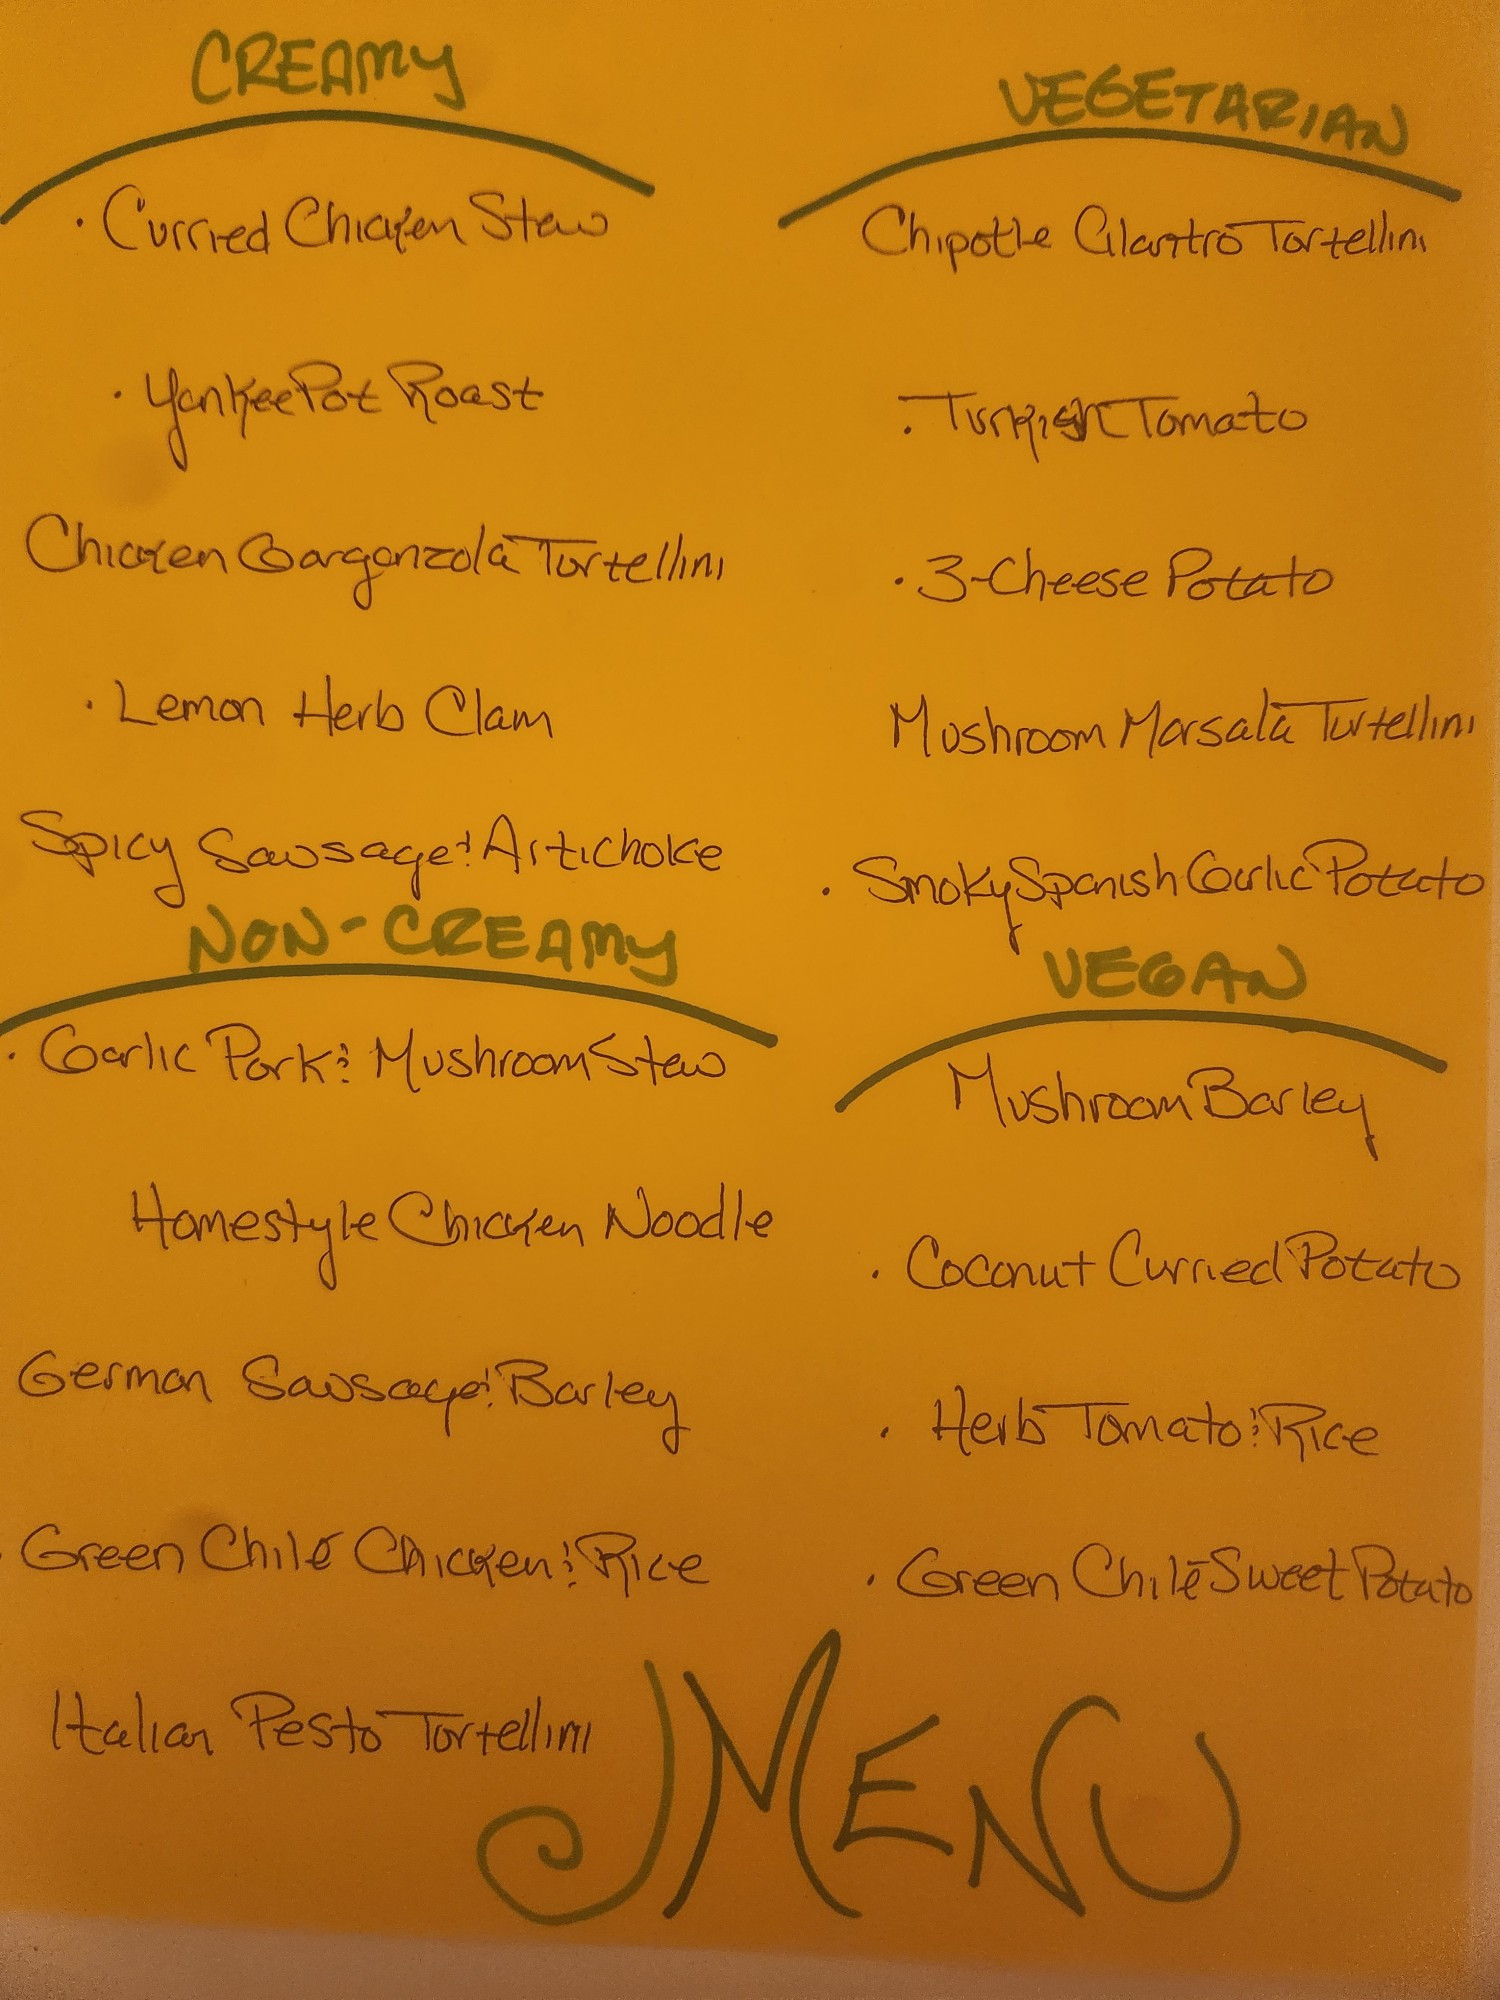 CREAMY
· Curried Chicken Stew
· Yankee Pot Roast
Chicken Gargonzola Tortellini
· Lemon Herb Clam
Spicy Sausage & Artichoke
NON-CREAMY
· Garlic Pork & Mushroom Stew
Homestyle Chicken Noodle
German Sausage & Barley
· Green Chile Chicken & Rice
Italian Pesto Tortellini
VEGETARIAN
Chipotle Cilantro Tortellini
· Turkish Tomato
· 3-Cheese Potato
Mushroom Marsala Tortellini
· Smoky Spanish Garlic Potato
VEGAN
Mushroom Barley
· Coconut Curried Potato
· Herb Tomato & Rice
· Green Chile Sweet Potato
MENU